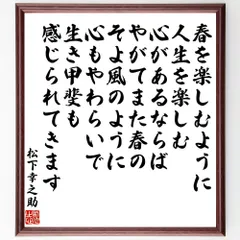 春を楽しむように
人生を楽しむ
心があるならば
やがてまた春の
そよ風のように
心もやわらいで
生き甲斐も
感じられてきます
松下幸之助